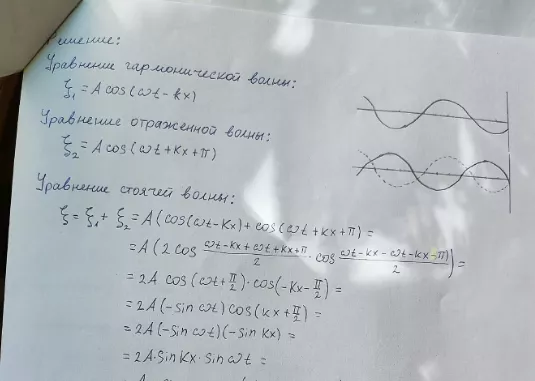 Решение:
Уравнение гармонической волны:
ξ₁ = A cos(ωt - kx)
Уравнение отраженной волны:
ξ₂ = A cos(ωt + kx + π)
Уравнение стоячей волны:
ξ = ξ₁ + ξ₂ = A(cos(ωt - kx) + cos(ωt + kx + π) =
= A(2 cos (ωt - kx + ωt + kx + π)/2 · cos (ωt - kx - ωt - kx - π)/2) =
= 2A cos(ωt + π/2) · cos(-kx - π/2) =
= 2A(-sin ωt) cos(kx + π/2) =
= 2A(-sin ωt)(-sin kx) =
= 2A · sin kx · sin ωt =